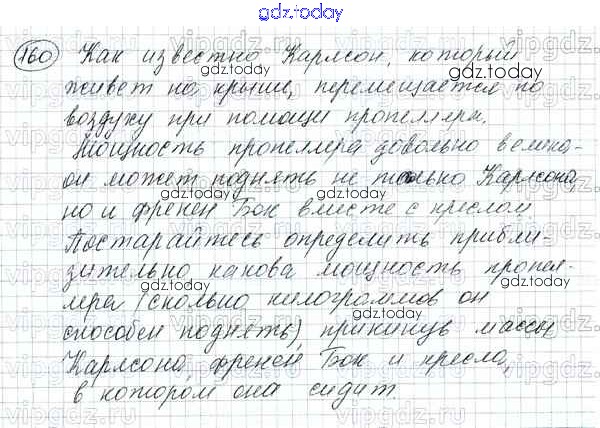 gdz.today
160 Как известно Карлсон, который
gdz.today
живет на крыше, перемещается по
воздуху при помощи пропеллера.
gdz.today
Мощность пропеллера довольно велика -
он может поднять не только Карлсона,
gdz.today
но и фрекен Бок вместе с креслом.
Постарайтесь определить прибли-
gdz.today
зительно какова мощность пропел-
лера (сколько килограммов он
gdz.today
способен поднять), прикинув массы
Карлсона, фрекен Бок и кресла,
gdz.today
в котором она сидит.
gdz.today
vipgdz.ru